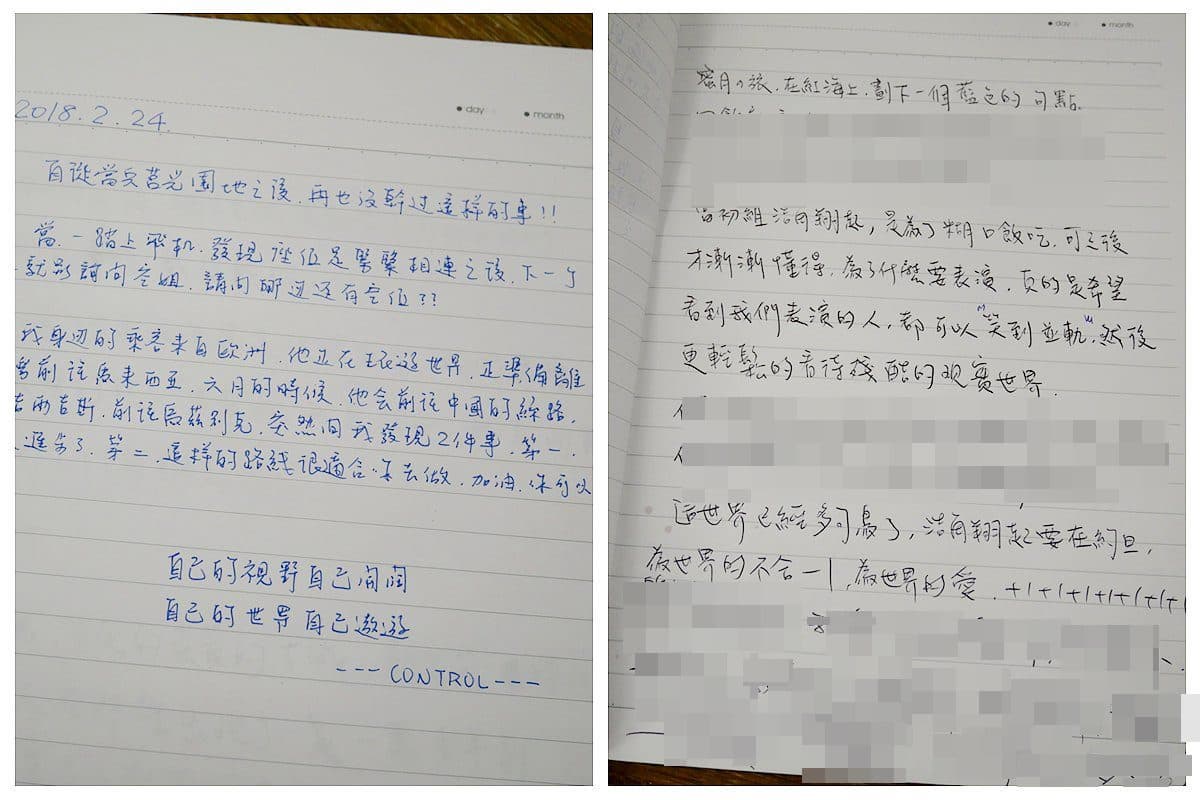 day month
2018.2.24.
自從當兵莒光園地之後,再也沒幹过這样的事!!
當,一踏上飛机,發現座位是緊緊相連之後,下一
就詢問空姐,請問哪边还有空位??
我身边的乘客来自欧洲,他正在环遊世界,正準備離
前往馬来西亚,六月的時候,他会前往中國的絲路,
吉斯,前往烏茲別克,突然间我發現2件事,第一,
了,第二,這样的路线很適合去做,加油,你可以
自己的視野自己開闊
自己的世界自己遨遊
---CONTROL---
day month
蜜月の旅,在紅海上,劃下一個藍色的句點.
當初組洁角翔起,是為了糊口飯吃,可之後
才漸漸懂得,為了什麼要表演,真的是希望
看到我們表演的人,都可以"笑到並軌",然後
更輕鬆的看待殘酷的现實世界.
這世界已經多可惡了,洁角翔起要在約旦,
為世界的不合一1,為世界的愛,+1+1+1+1+1+1+1